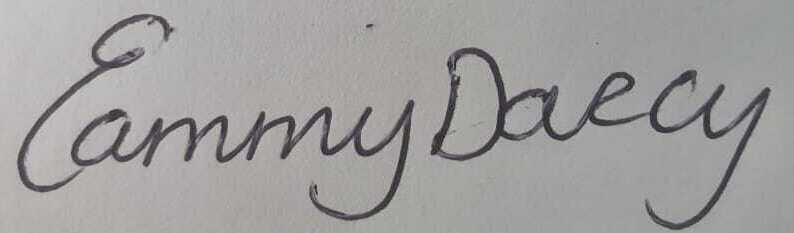 Eammy Daecy